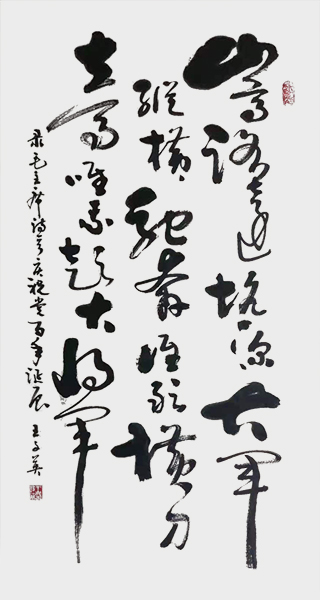 山高路远坑深大军
纵横驰奔谁敢横刀
立马唯我彭大将军
录毛主席诗庆祝党百年诞辰 王子英